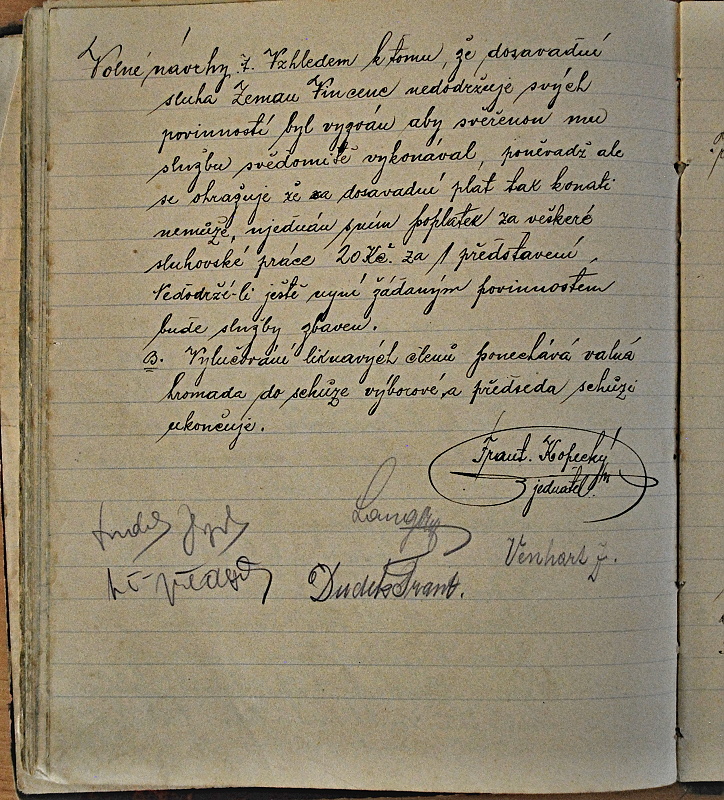 Volné návrhy. Vzhledem k tomu, že dosavadní
sluha Zeman Vincenc nedodržuje svých
povinností byl vyzván aby svěřenou mu
službu svědomitě vykonával, poněvadž ale
se ohražuje že za dosavadní plat tak konati
nemůže, ujednán s ním poplatek za veškeré
sluhovské práce 20 Kč. za 1 představení,
Nedodrží-li ještě nyní žádaným povinnostem
bude služby zbaven.
B. Vylučování liknavých členů ponechává valná
hromada do schůze výborové, a předseda schůzi
ukončuje.
Frant. Kopecký
jednatel.
Venhart J.
Dudek Frant.